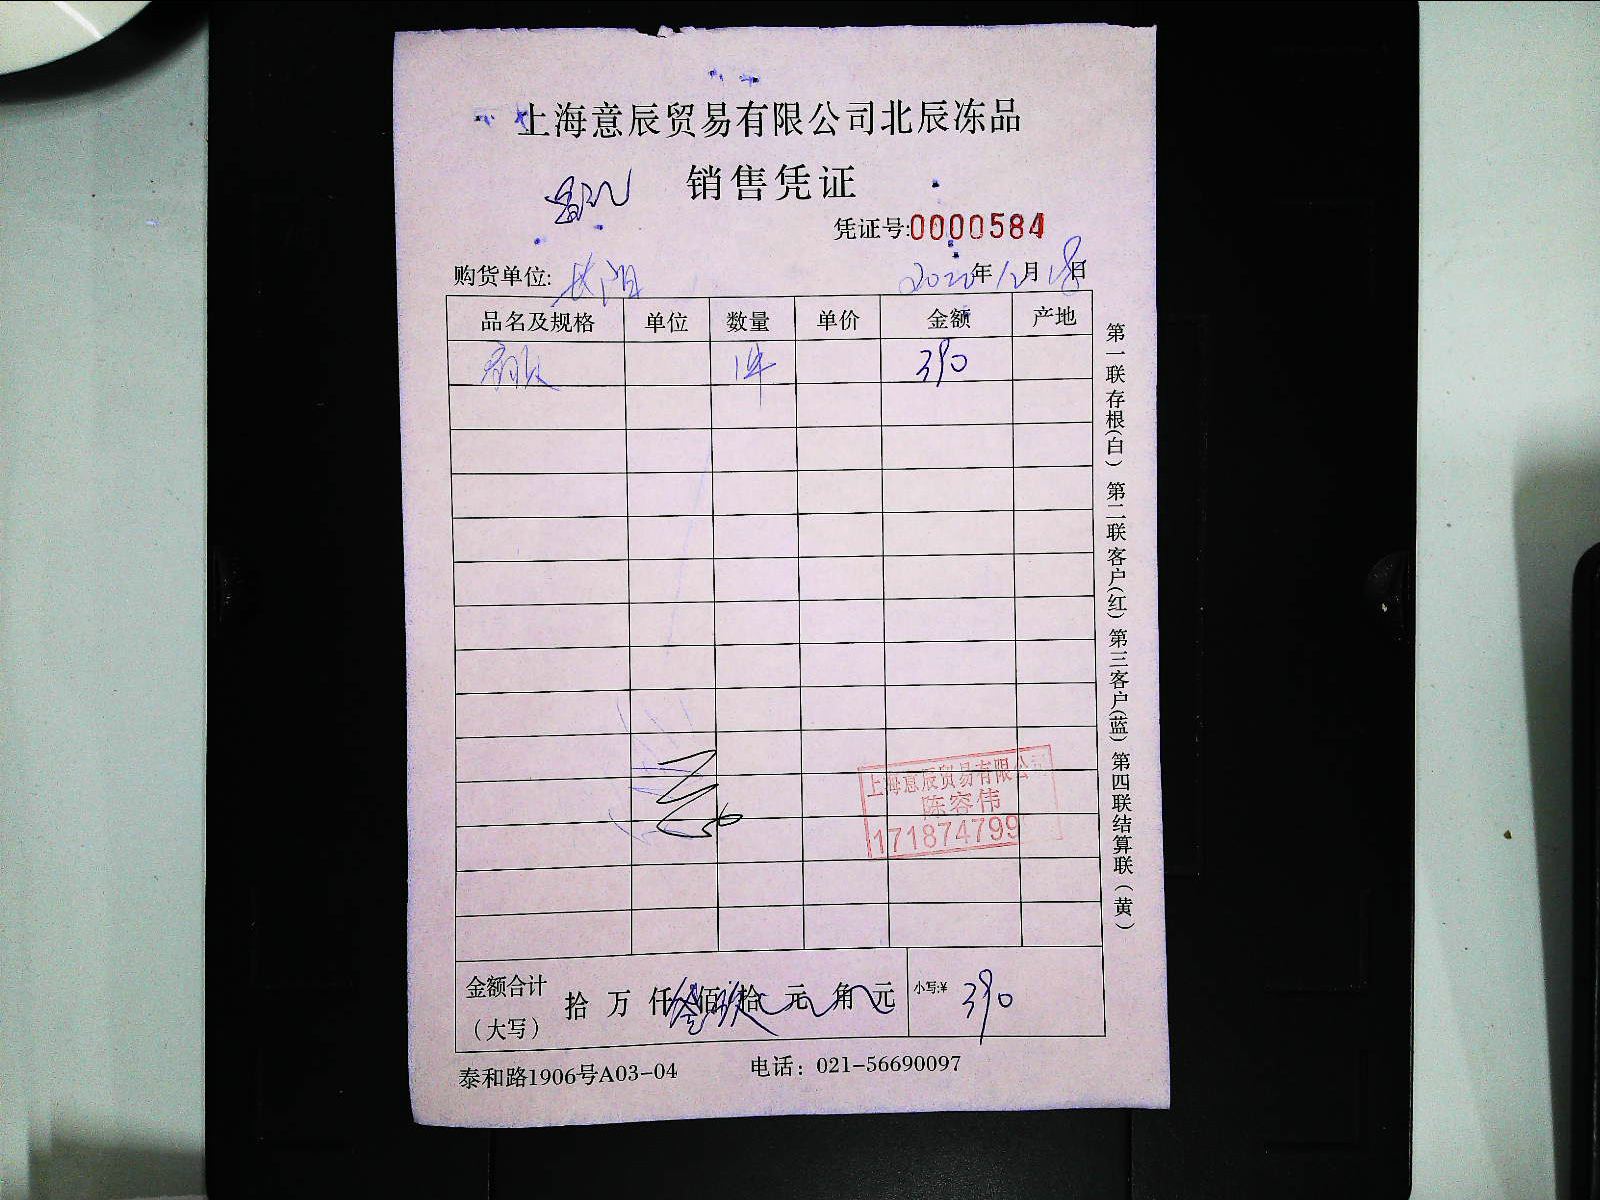 上海意辰贸易有限公司北辰冻品
销售凭证
凭证号:0000584
购货单位: 长阳 2022年12月18日
品名及规格 单位 数量 单价 金额 产地
1件 390
上海意辰贸易有限公司
陈容伟
171874799
金额合计
（大写） 拾 万 仟 叁佰 玖拾 元 角 元 小写:¥ 390
泰和路1906号A03-04 电话：021-56690097
第一联存根(白) 第二联客户(红) 第三客户(蓝) 第四联结算联(黄)